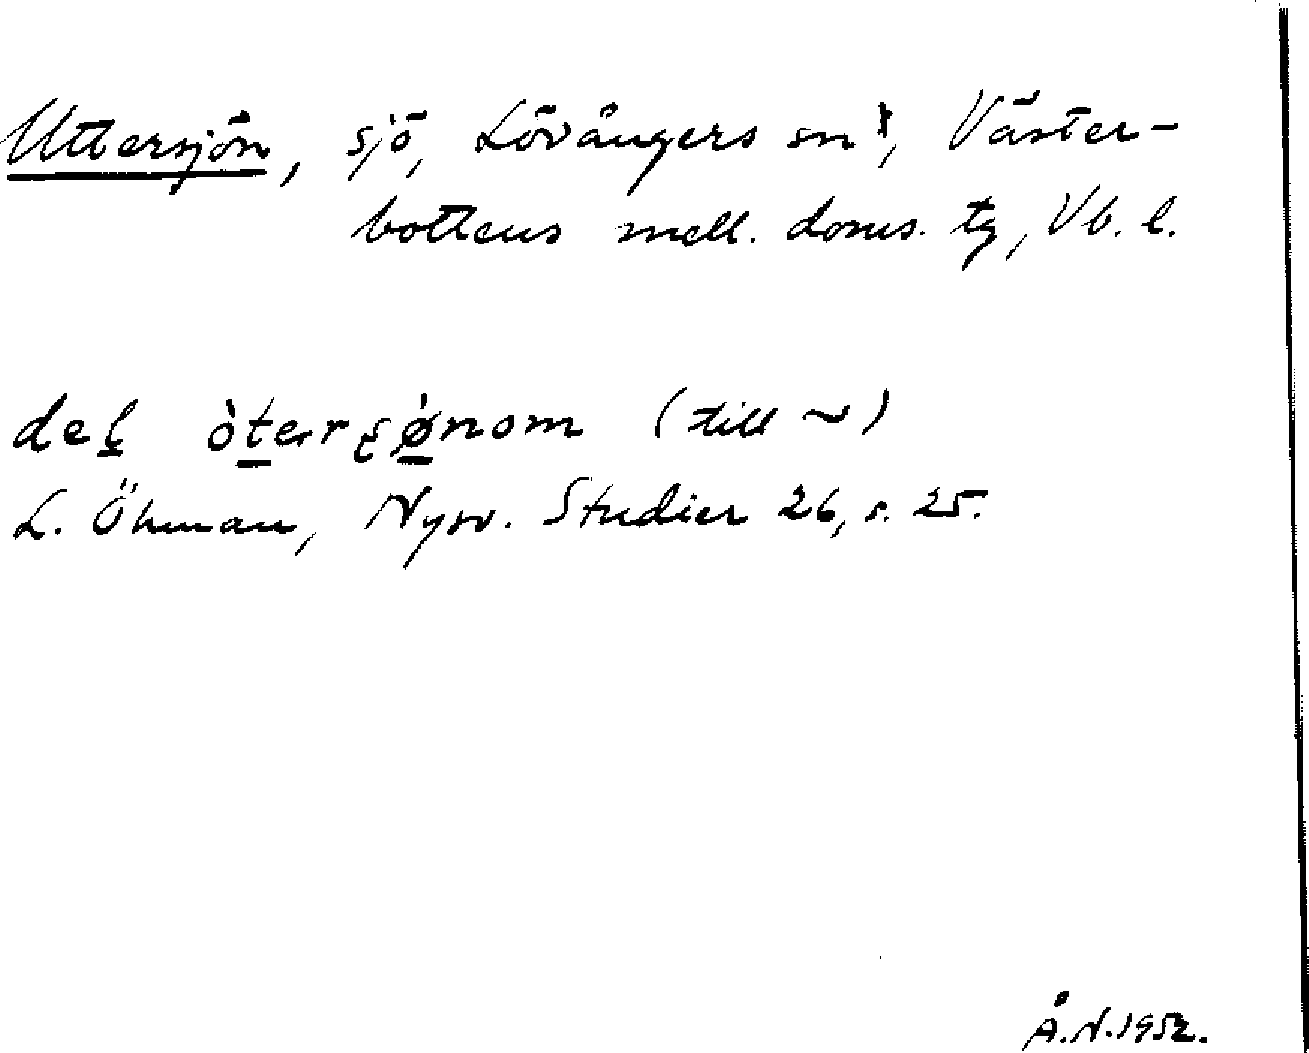 Uttersjön, sjö, Lövångers sn, Väster-
bottens mell. doms. tg, Vb. l.
(till ~)
L. Öhman, Nysv. Studier 26, s. 25.
Å.N. 1952.